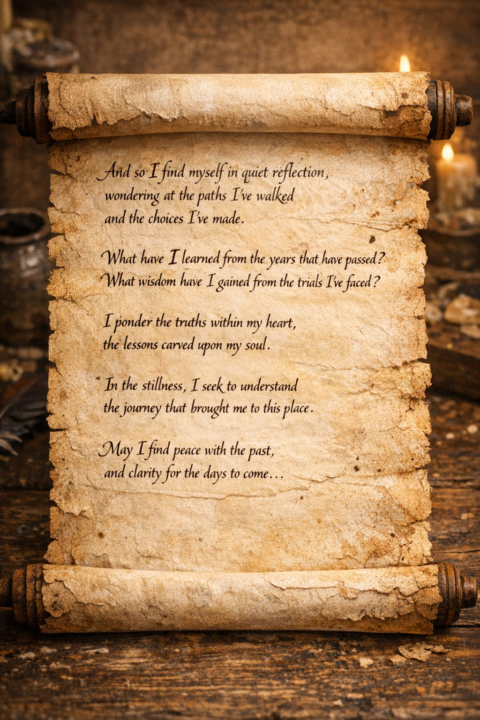 And so I find myself in quiet reflection,
wondering at the paths I've walked
and the choices I've made.
What have I learned from the years that have passed?
What wisdom have I gained from the trials I've faced?
I ponder the truths within my heart,
the lessons carved upon my soul.
In the stillness, I seek to understand
the journey that brought me to this place.
May I find peace with the past,
and clarity for the days to come...